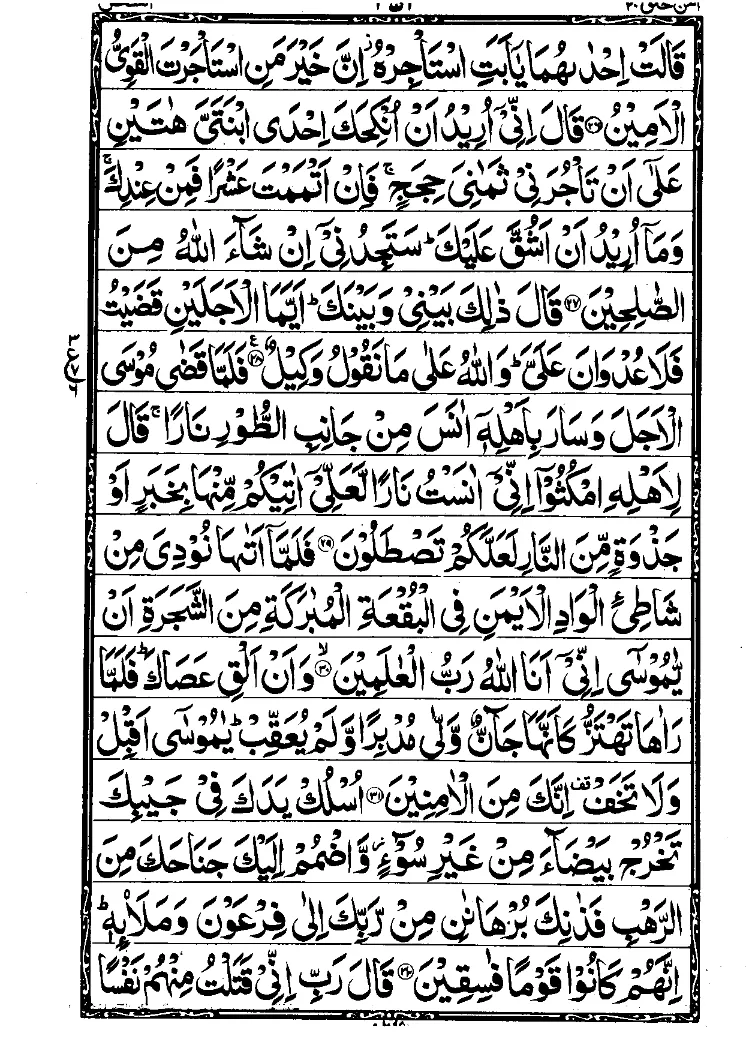 قَالَتْ اِحْدٰىهُمَا يٰۤاَبَتِ اسْتَاْجِرْهُ ز اِنَّ خَيْرَ مَنِ اسْتَاْجَرْتَ الْقَوِيُّ
الْاَمِيْنُ ۝٢٦ قَالَ اِنِّيْۤ اُرِيْدُ اَنْ اُنْكِحَكَ اِحْدَى ابْنَتَيَّ هٰتَيْنِ
عَلٰۤى اَنْ تَاْجُرَنِيْ ثَمٰنِيَ حِجَجٍ ۚ فَاِنْ اَتْمَمْتَ عَشْرًا فَمِنْ عِنْدِكَ ۚ
وَمَاۤ اُرِيْدُ اَنْ اَشُقَّ عَلَيْكَ ؕ سَتَجِدُنِيْۤ اِنْ شَآءَ اللّٰهُ مِنَ
الصّٰلِحِيْنَ ۝٢٧ قَالَ ذٰلِكَ بَيْنِيْ وَبَيْنَكَ ؕ اَيَّمَا الْاَجَلَيْنِ قَضَيْتُ
فَلَا عُدْوَانَ عَلَيَّ ؕ وَاللّٰهُ عَلٰى مَا نَقُوْلُ وَكِيْلٌ ۝٢٨ ع فَلَمَّا قَضٰى مُوْسَى
الْاَجَلَ وَسَارَ بِاَهْلِهٖۤ اٰنَسَ مِنْ جَانِبِ الطُّوْرِ نَارًا ۚ قَالَ
لِاَهْلِهِ امْكُثُوْۤا اِنِّيْۤ اٰنَسْتُ نَارًا لَّعَلِّيْۤ اٰتِيْكُمْ مِّنْهَا بِخَبَرٍ اَوْ
جَذْوَةٍ مِّنَ النَّارِ لَعَلَّكُمْ تَصْطَلُوْنَ ۝٢٩ فَلَمَّاۤ اَتٰىهَا نُوْدِيَ مِنْ
شَاطِئِ الْوَادِ الْاَيْمَنِ فِي الْبُقْعَةِ الْمُبٰرَكَةِ مِنَ الشَّجَرَةِ اَنْ
يّٰمُوْسٰۤى اِنِّيْۤ اَنَا اللّٰهُ رَبُّ الْعٰلَمِيْنَ ۝٣٠ۙ وَاَنْ اَلْقِ عَصَاكَ ؕ فَلَمَّا
رَاٰهَا تَهْتَزُّ كَاَنَّهَا جَآنٌّ وَّلّٰى مُدْبِرًا وَّلَمْ يُعَقِّبْ ؕ يٰمُوْسٰۤى اَقْبِلْ
وَلَا تَخَفْ قف اِنَّكَ مِنَ الْاٰمِنِيْنَ ۝٣١ اُسْلُكْ يَدَكَ فِيْ جَيْبِكَ
تَخْرُجْ بَيْضَآءَ مِنْ غَيْرِ سُوْٓءٍ ز وَّاضْمُمْ اِلَيْكَ جَنَاحَكَ مِنَ
الرَّهْبِ فَذٰنِكَ بُرْهَانٰنِ مِنْ رَّبِّكَ اِلٰى فِرْعَوْنَ وَمَلَا۟ئِهٖ ؕ
اِنَّهُمْ كَانُوْا قَوْمًا فٰسِقِيْنَ ۝٣٢ قَالَ رَبِّ اِنِّيْ قَتَلْتُ مِنْهُمْ نَفْسًا